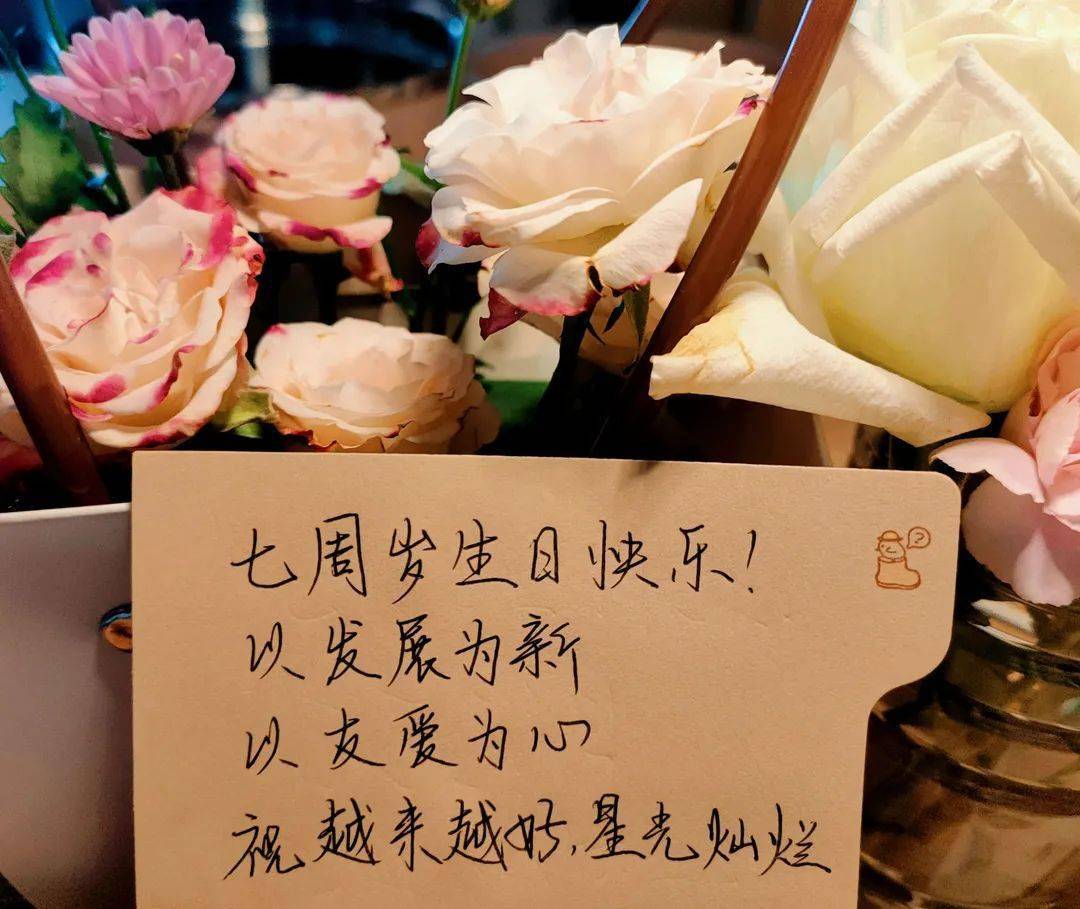 七周岁生日快乐!
以发展为新
以友爱为心
祝越来越好,星光灿烂
?